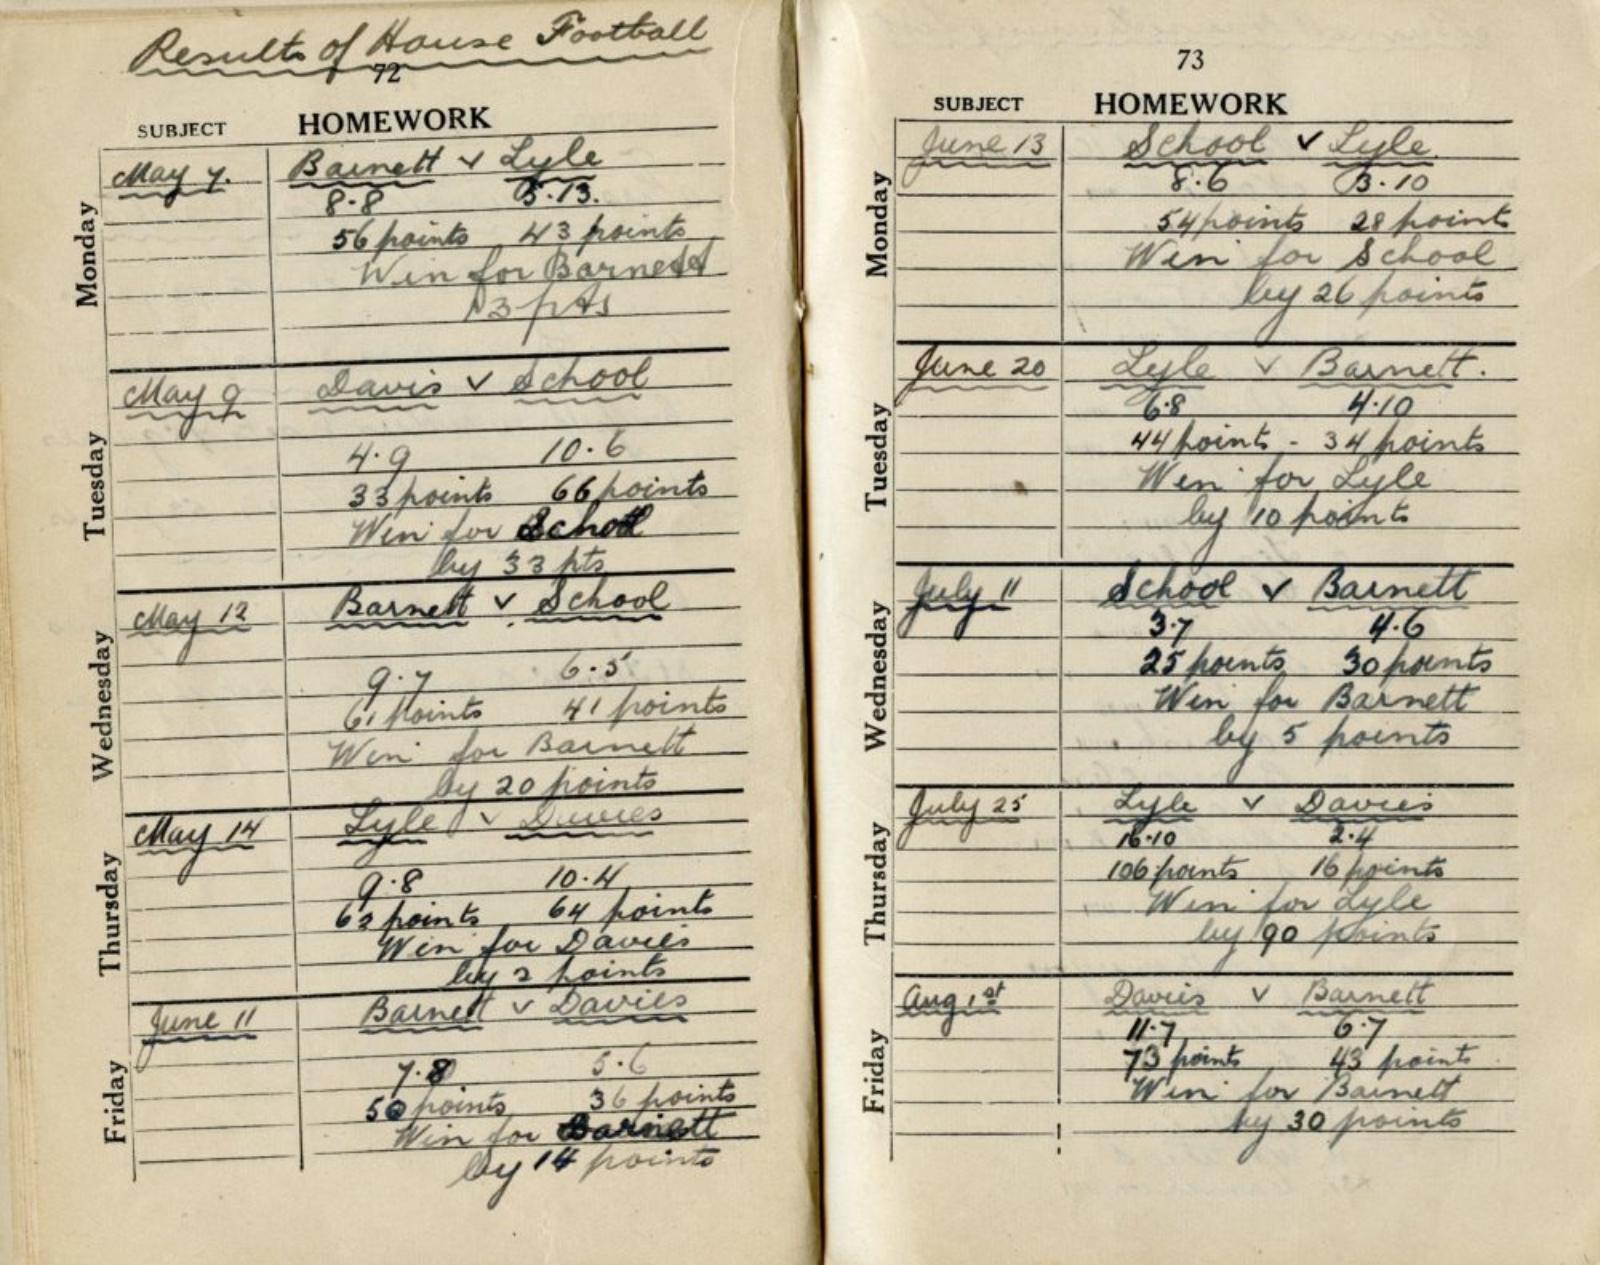 Results of House Football
72
SUBJECT HOMEWORK
Monday
May 7. Barnett v Lyle
8.8 5.13.
56 points 43 points
Win for Barnett
13 pts
Tuesday
May 9 Davis v School
4.9 10.6
33 points 66 points
Win for School
by 33 pts
Wednesday
May 12 Barnett v School
9.7 6.5
61 points 41 points
Win for Barnett
by 20 points
Thursday
May 14 Lyle v Davies
9.8 10.4
62 points 64 points
Win for Davies
by 2 points
Friday
June 11 Barnett v Davies
7.8 5.6
50 points 36 points
Win for Barnett
by 14 points
73
SUBJECT HOMEWORK
Monday
June 13 School v Lyle
8.6 3.10
54 points 28 points
Win for School
by 26 points
Tuesday
June 20 Lyle v Barnett.
6.8 4.10
44 points - 34 points
Win for Lyle
by 10 points
Wednesday
July 11 School v Barnett
3.7 4.6
25 points 30 points
Win for Barnett
by 5 points
Thursday
July 25 Lyle v Davies
16.10 2.4
106 points 16 points
Win for Lyle
by 90 points
Friday
Aug 1st Davies v Barnett
11.7 6.7
73 points 43 points
Win for Barnett
by 30 points